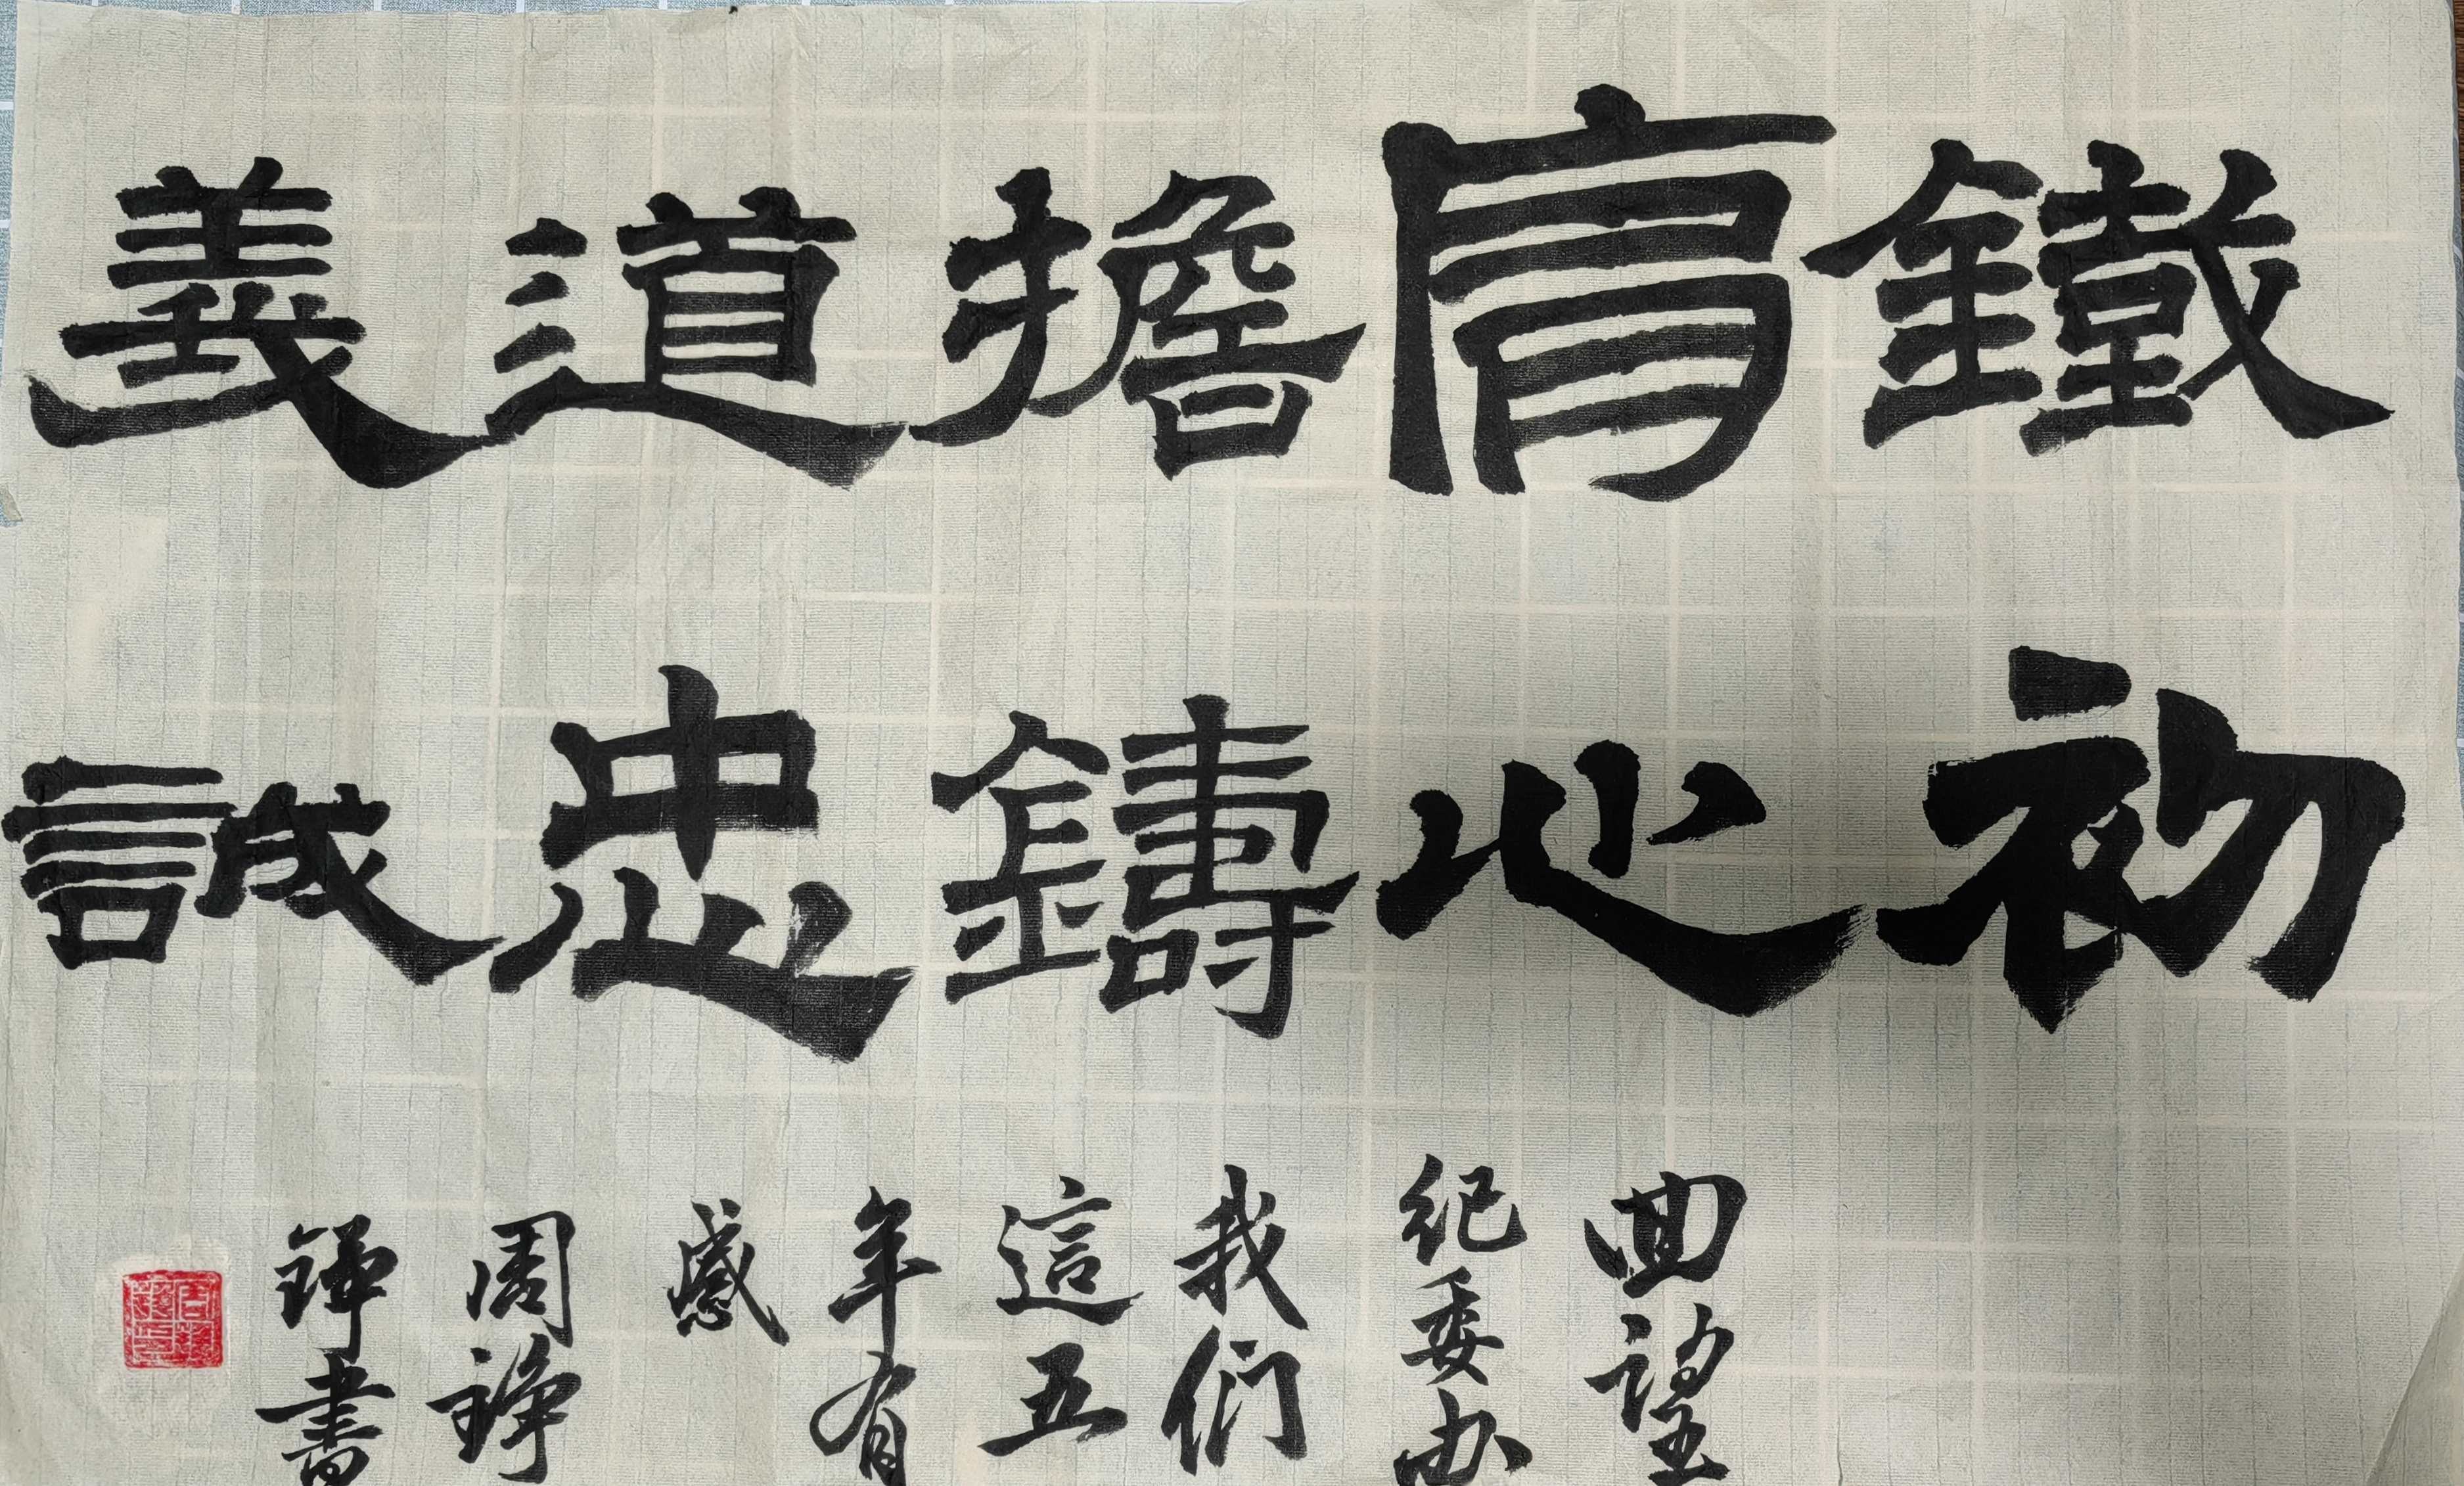 鐵肩擔道義
初心鑄忠誠
回望
纪委办
我们
這五
年有
感
周錚
鐸書